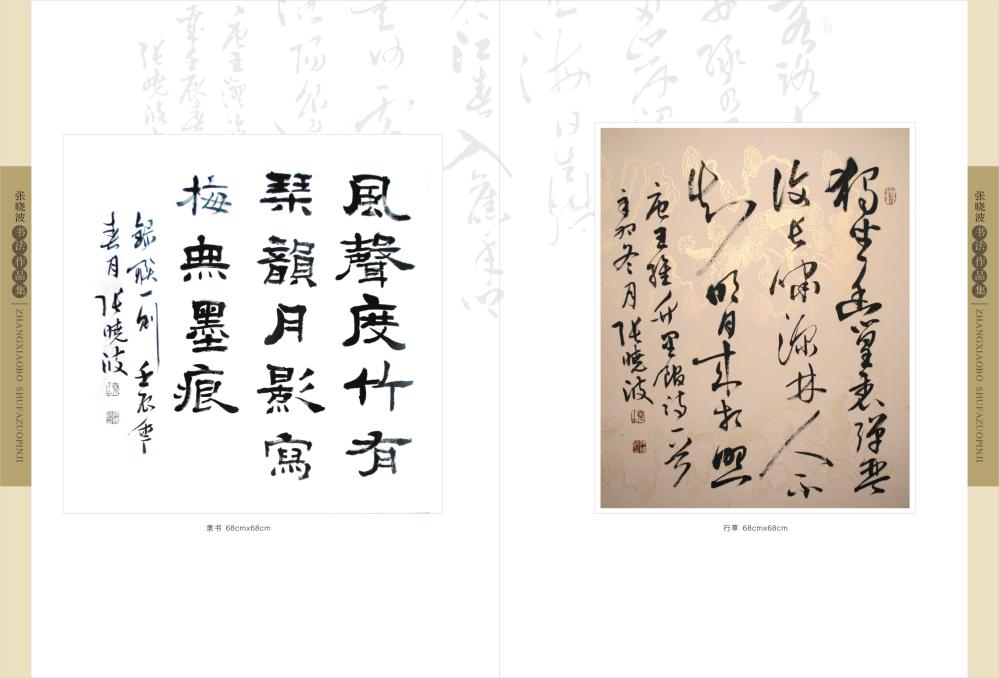 张晓波书法作品集
ZHANGXIAOBO SHUFAZUOPINJI
風聲度竹有
琹韻月影寫
梅無墨痕
錄联一則 壬辰年
春月 張曉波
隶书 68cmx68cm
江春入舊年
海日生殘
獨坐幽篁裏彈琴
復長嘯深林人不
知明月來相照
唐王維竹里館詩一首
辛卯冬月 張曉波
行草 68cmx68cm
张晓波书法作品集
ZHANGXIAOBO SHUFAZUOPINJI